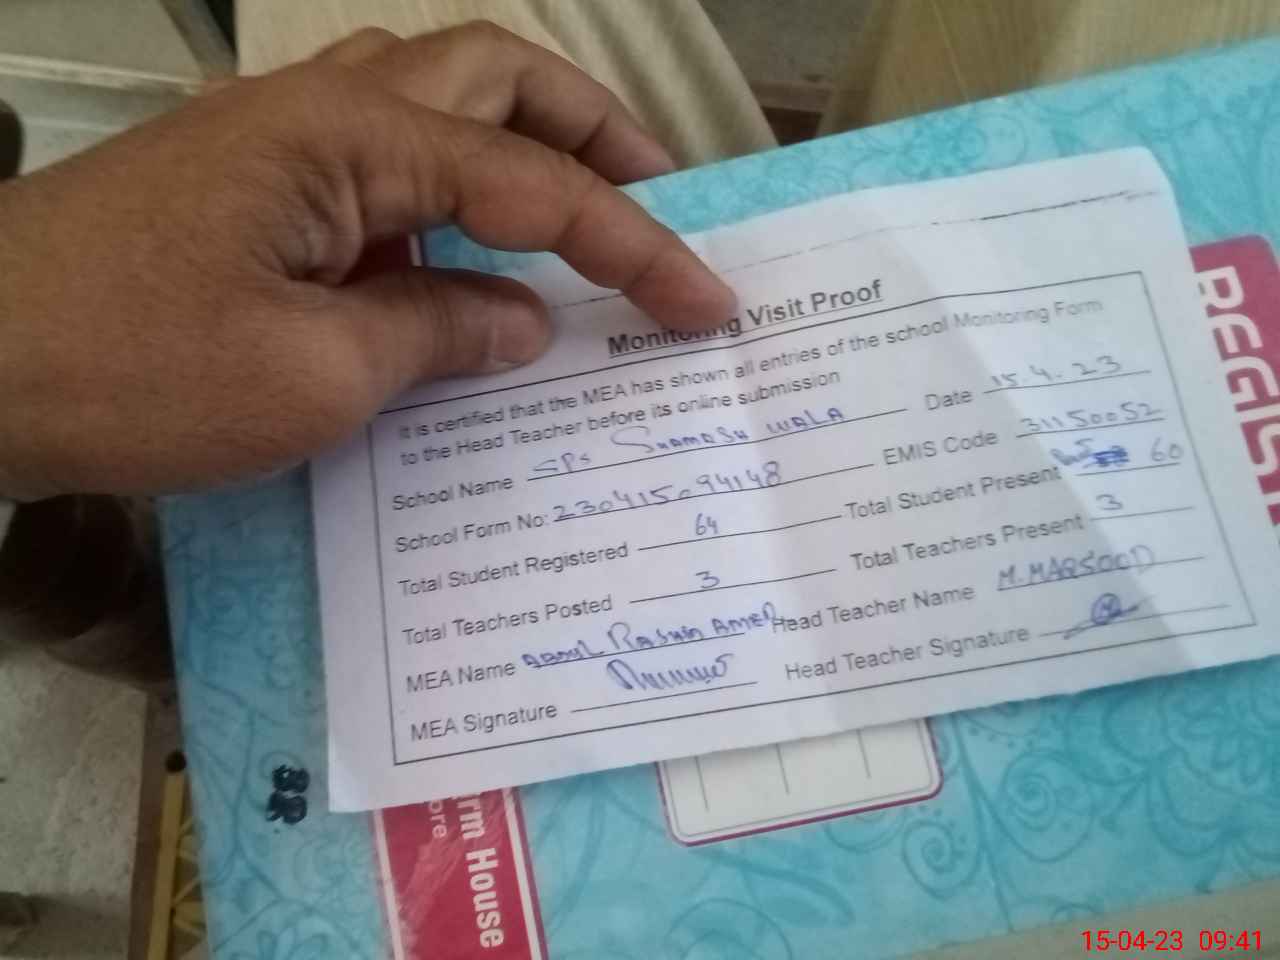 Monitoring Visit Proof
It is certified that the MEA has shown all entries of the school Monitoring Form
to the Head Teacher before its online submission
School Name GPS SHAMASH WALA Date 15.4.23
School Form No: 230415094148 EMIS Code 31150052
Total Student Registered 64 Total Student Present 60
Total Teachers Posted 3 Total Teachers Present 3
MEA Name RASHID AMED Head Teacher Name M. MAQSOOD
MEA Signature Head Teacher Signature
REGIST
rm House
ore
15-04-23 09:41